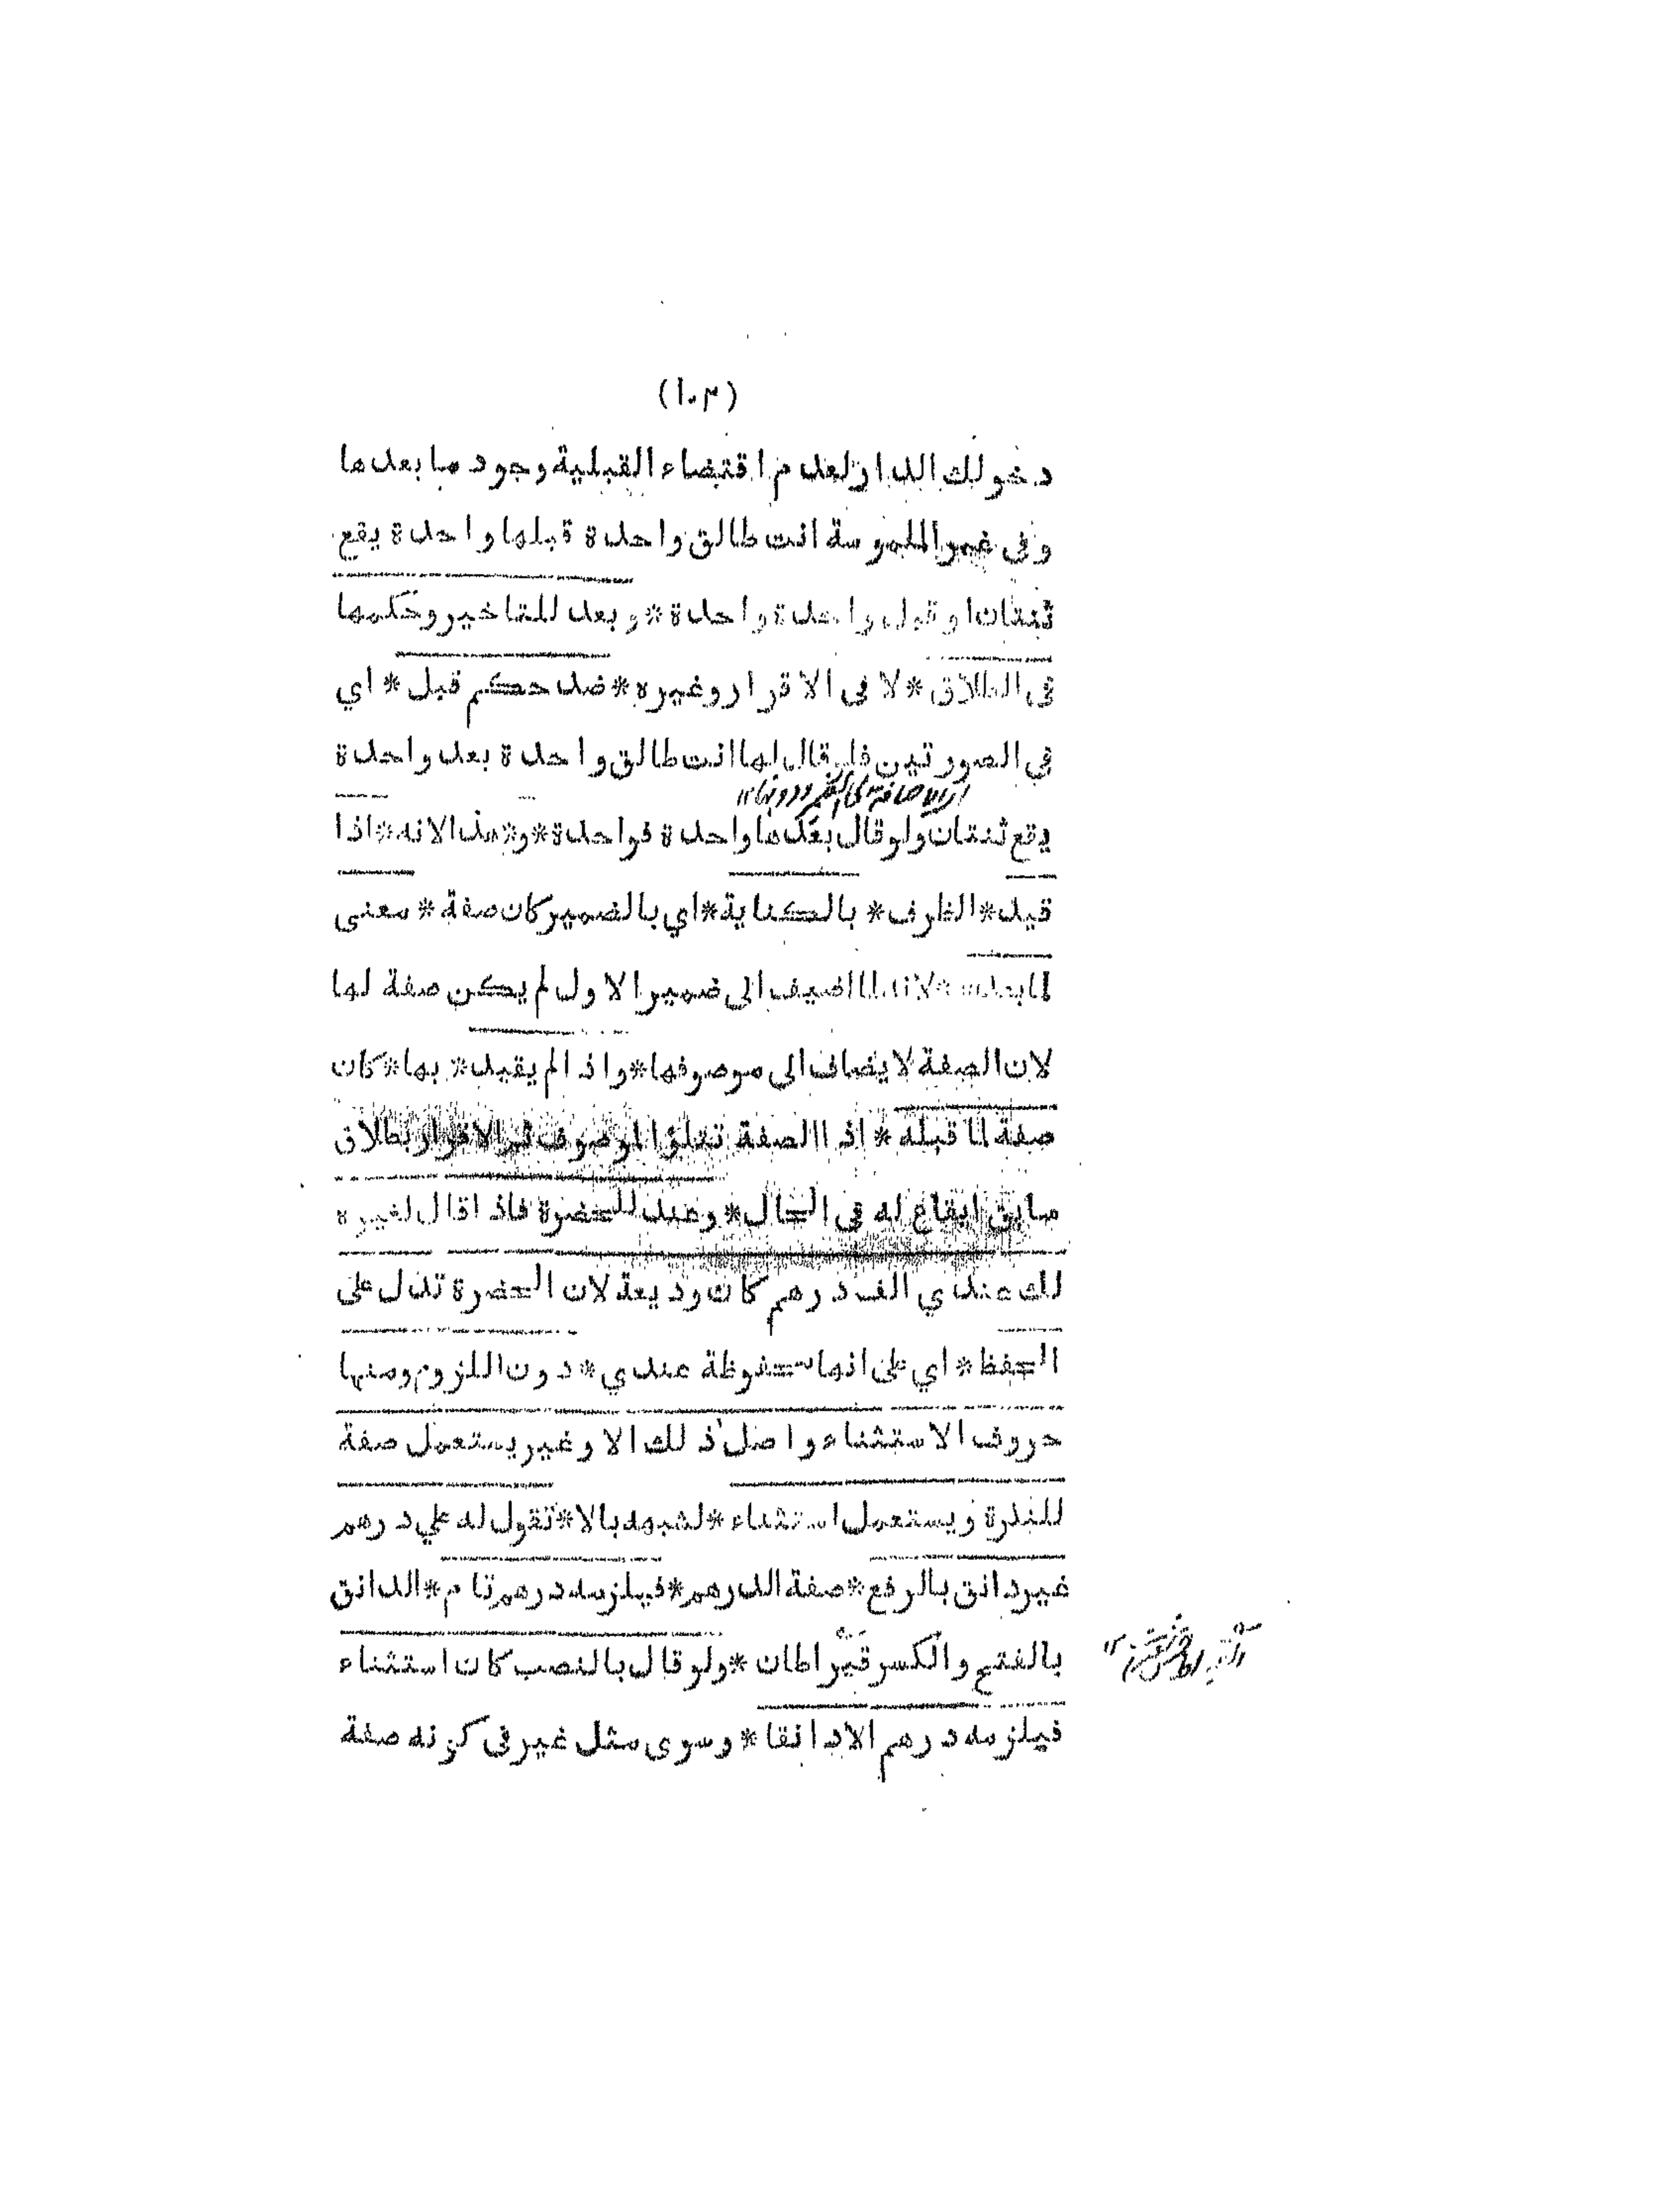 (١٠٣)
دخولك الدار لعدم اقتضاء القبلية وجود ما بعدها
وفى غير الملموسة انت طالق واحدة قبلها واحدة يقع
ثنتان او قبل واحدة واحدة * وبعد للتاخير وحكمها
فى الطلاق * لا فى الاقرار وغيره * ضد حكم قبل * اي
في الصورتين فلو قال لها انت طالق واحدة بعد واحدة
يقع ثنتان ولو قال بعدها واحدة فواحدة * و * هذا لانه * اذا
قيد * الظرف * بالكناية * اي بالضمير كان صفة * معنى
لما بعده * لانه لما اضيف الى ضمير الاول لم يكن صفة لها
لان الصفة لا يضاف الى موصوفها * واذا لم يقيد * بها * كان
صفة لما قبله * اذ الصفة تتلوا الموصوف ثم الاقرار بطلاق
سابق ايقاع له فى الحال * وعند للحضرة فاذا قال لغيره
لك عندي الف درهم كان وديعة لان الحضرة تدل على
الحفظ * اي على انها محفوظة عندي * دون اللزوم ومنها
حروف الاستثناء واصل ذلك الا وغير يستعمل صفة
للنكرة ويستعمل استثناء * لشبهه بالا * تقول له علي درهم
غير دانق بالرفع * صفة الدرهم * فيلزمه درهم تام * الدانق
بالفتح والكسر قيراطان * ولو قال بالنصب كان استثناء
فيلزمه درهم الا دانقا * وسوى مثل غير فى كونه صفة